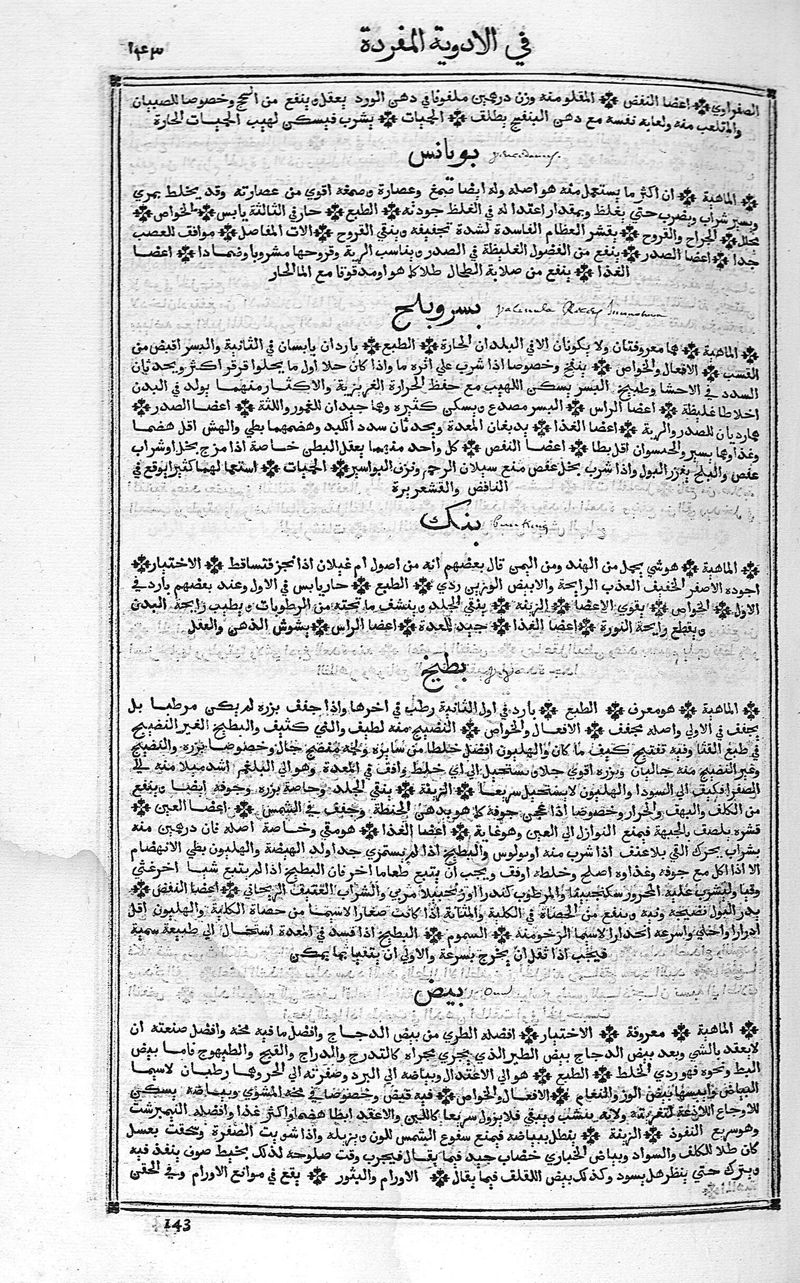 ١٤٣
في الادوية المفردة
الصفراوي اعضا النفض المقلو منه وزن درهمين ملفوتا في دهن الورد يعقل وينفع من السحج وخصوصا للصبيان
والمتلعب منه ولعابه نفسه مع دهن البنفسج يطلق الحميات يشرب فيسكن لهيب الحميات الحارة
بويانس
الماهية ان اكثر ما يستعمل منه هو اصله وله ايضا صمغ وعصارة وصمغه اقوي من عصارته وقد يخلط بمري
ويسير شراب ويضرب حتي يغلظ وبمقدار اعتداله في الغلظ جودته الطبع حار في الثالثة يابس الخواص
محلل الجراح والقروح يقشر العظام الفاسدة لشدة تجفيفه وينقي القروح الات المفاصل موافق للعصب
جدا اعضا الصدر ينفع من الفضول الغليظة في الصدر ويناسب الرية وقروحها مشروبا وضمادا اعضا
الغذا ينفع من صلابة الطحال طلا كما هو او مدقوقا مع الما الحار
بسر وبلح
الماهية هما معروفتان ولا يكونان الا في البلدان الحارة الطبع باردان يابسان في الثانية والبسر اقبض من
القسب الافعال والخواص ينفخ وخصوصا اذا شرب علي اثره ما واذا كان حلا اول ما يحلوا قرقر اكثر ويحدثان
السدد في الاحشا وطبيخ البسر يسكن اللهيب مع حفظ الحرارة الغريزية والاكثار منهما يولد في البدن
اخلاطا غليظة اعضا الراس البسر مصدع ويسكن كثيره وهما جيدان للعمور واللثة اعضا الصدر
هما رديان للصدر والرية اعضا الغذا يدبغان المعدة ويحدثان سدد الكبد وهضمهما بطي والهش اقل هضما
وغذاوهما يسير والجيسوان اقل بطا اعضا النفض كل واحد منهما يعقل البطن خاصة اذا مزج بخل او شراب
عفص والبلح يغزر البول واذا شرب بخل عفص منع سيلان الرحم ونزف البواسير الحميات استعمالهما كثيرا يوقع في
النافض والقشعريرة
بنك
الماهية هو شي يحمل من الهند ومن اليمن قال بعضهم انه من اصول ام غيلان اذا نجر فتساقط الاختيار
اجوده الاصفر الخفيف العذب الرايحة والابيض الوزين ردي الطبع حار يابس في الاول وعند بعضهم بارد في
الاول الخواص يقوي الاعضا الزينة ينقي الجلد وينشف ما تحته من الرطوبات ويطيب رايحة البدن
ويقطع رايحة النورة اعضا الغذا جيد للمعدة اعضا الراس يشوش الذهن والعقل
بطيخ
الماهية هو معرف الطبع بارد في اول الثانية رطب في اخرها واذا جفف بزره لم يكن مرطبا بل
يجفف في الاولي واصله مجفف الافعال والخواص النضيج منه لطيف والني كثيف والبطيخ الغير النضيج
في طبع القثا وفيه تفتيح كيف ما كان والهليون افضل خلطا من سايره ولحمه منضج جال وخصوصا بزره والنضيج
وغير النضيج منه جاليان وبزره اقوي جلا ويستحيل الي اي خلط وافق في المعدة وهو الي البلغم اشد ميلا منه الي
الصفرا فكيف الي السودا والهليون لا يستحيل سريعا الزينة ينقي الجلد وخاصة بزره وجوفه ايضا وينفع
من الكلف والبهق والحزاز وخصوصا اذا عجن جوفه كما هو بدقيق الحنطة وجفف في الشمس اعضا العين
قشره يلصق بالجبهة فيمنع النوازل الي العين وهو غاية اعضا الغذا هو مقي وخاصة اصله فان درهمين منه
بشراب يحرك القي بلا عنف اذا شرب منه اوبولوس والبطيخ اذا لم يستمري جدا ولد الهيضة والهليون بطي الانهضام
الا اذا اكل مع جوفه وغذاوه اصلح وخلطه اوفق ويجب ان يتبع طعاما اخر فان البطيخ اذا لم يتبع شيا اخر غثي
وقيا وليشرب عليه المحرور سكنجبينا والمرطوب كندرا او زنجبيلا مربي والشراب العتيق الريحاني اعضا النفض
يدر البول نضيجه ونيه وينفع من الحصاة في الكلية والمثانة اذا كانت صغارا لا سيما من حصاة الكلية والهليون اقل
ادرارا واحلي واسرعه انحدارا لا سيما الرخو منه السموم البطيخ اذا فسد في المعدة استحال الي طبيعة سمية
فيجب اذا ثقل ان يخرج بسرعة والاولي ان يتقيا بما يمكن
بيض
الماهية معروفة الاختيار افضله الطري من بيض الدجاج وافضل ما فيه محه وافضل صنعته ان
لا يعقد بالشي وبعد بيض الدجاج بيض الطير الذي يجري مجراه كالتدرج والدراج والقبج والطيهوج فاما بيض
البط ونحوه فهو ردي الخلط الطبع هو الي الاعتدال وبياضه الي البرد وصفرته الي الحر وهما رطبان لا سيما
البياض وايبسها بيض الوز والنعام الافعال والخواص فيه قبض وخصوصا في محه المشوي وبياضه يسكن
للاوجاع اللاذعة لتغريته ولانه ينشب ويبقي فلا يزول سريعا كاللبن والاعقد ابطا هضما واكثر غذا وافضله النيمبرشت
وهو سريع النفوذ الزينة يطلي ببياضه فيمنع سفوع الشمس للون ويزيله واذا شويت الصفرة وسحقت بعسل
كان طلا للكلف والسواد وبياض الحباري خضاب جيد فيما يقال فيجرب وقت صلوحه لذلك بخيط صوف ينفذ فيه
ويترك حتي ينظر هل يسود وكذلك بيض اللقلق فيما يقال الاورام والبثور يقع في موانع الاورام وفي الحقن
143